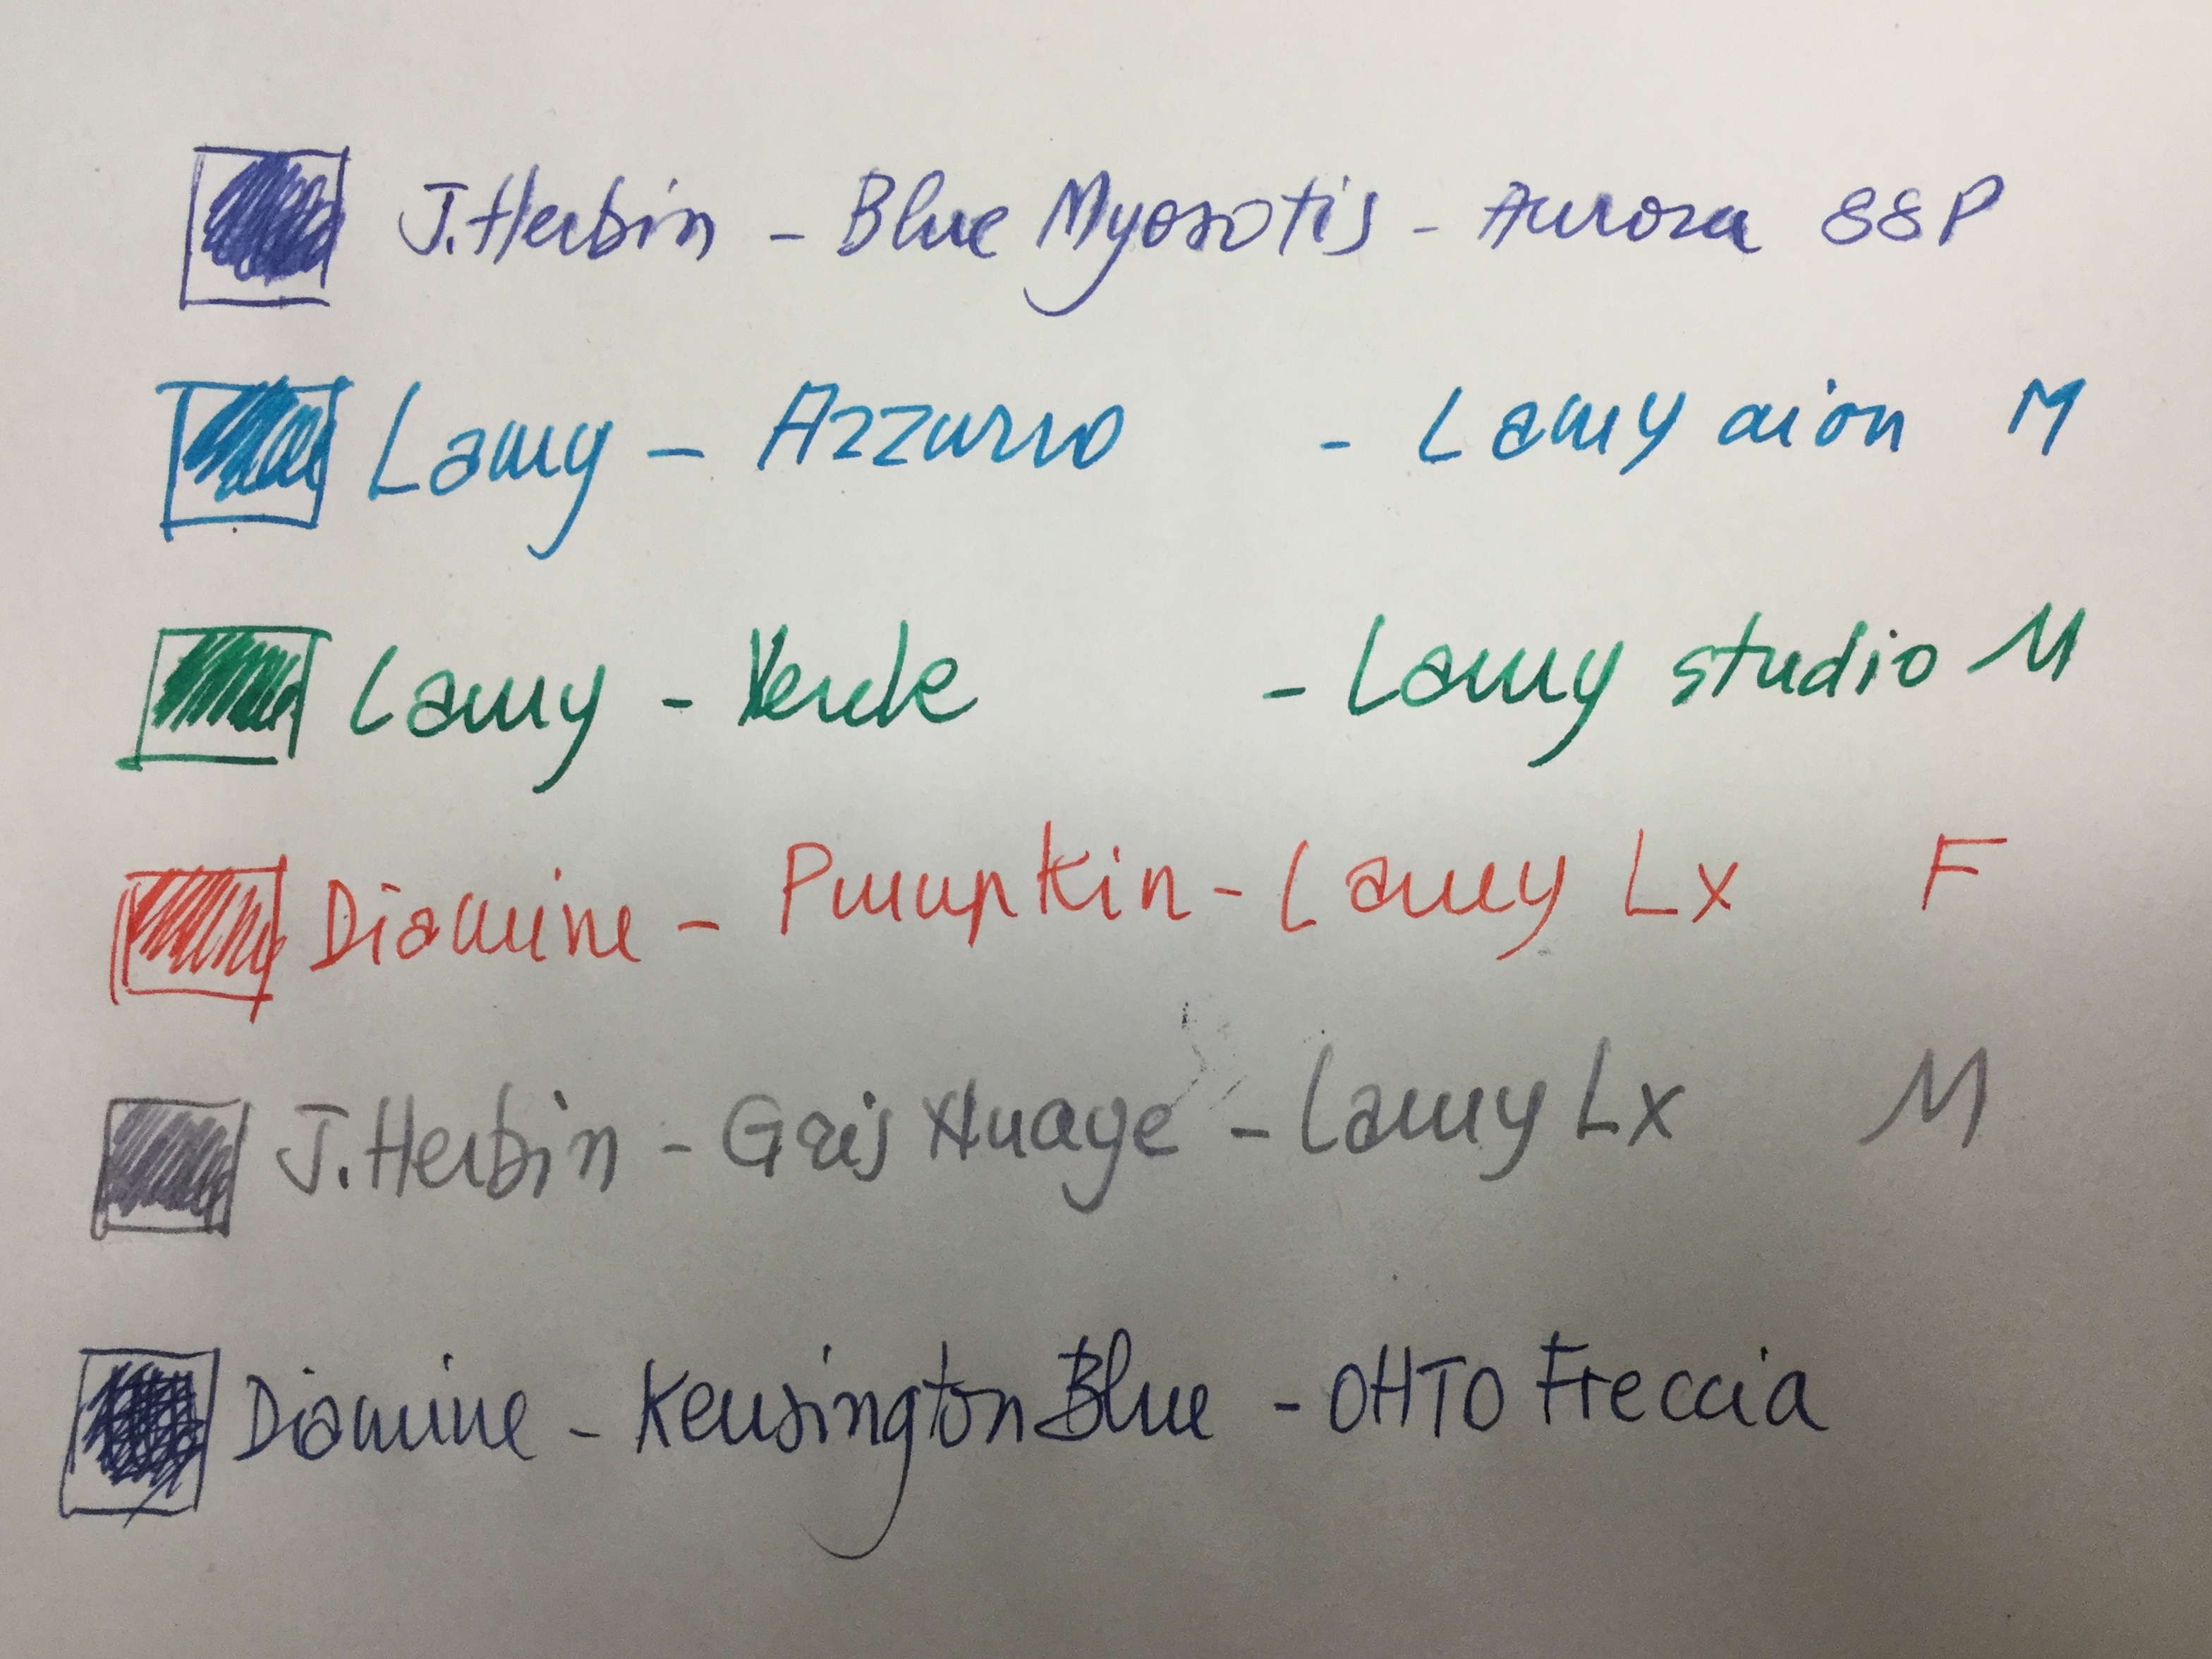 J.Herbin - Blue Myosotis - Aurora 88P
Lamy - Azzurro - Lamy aion M
Lamy - Verde - Lamy studio M
Diamine - Pumpkin - Lamy Lx F
J.Herbin - Gris Nuage - Lamy Lx M
Diamine - Kensington Blue - OHTO Freccia